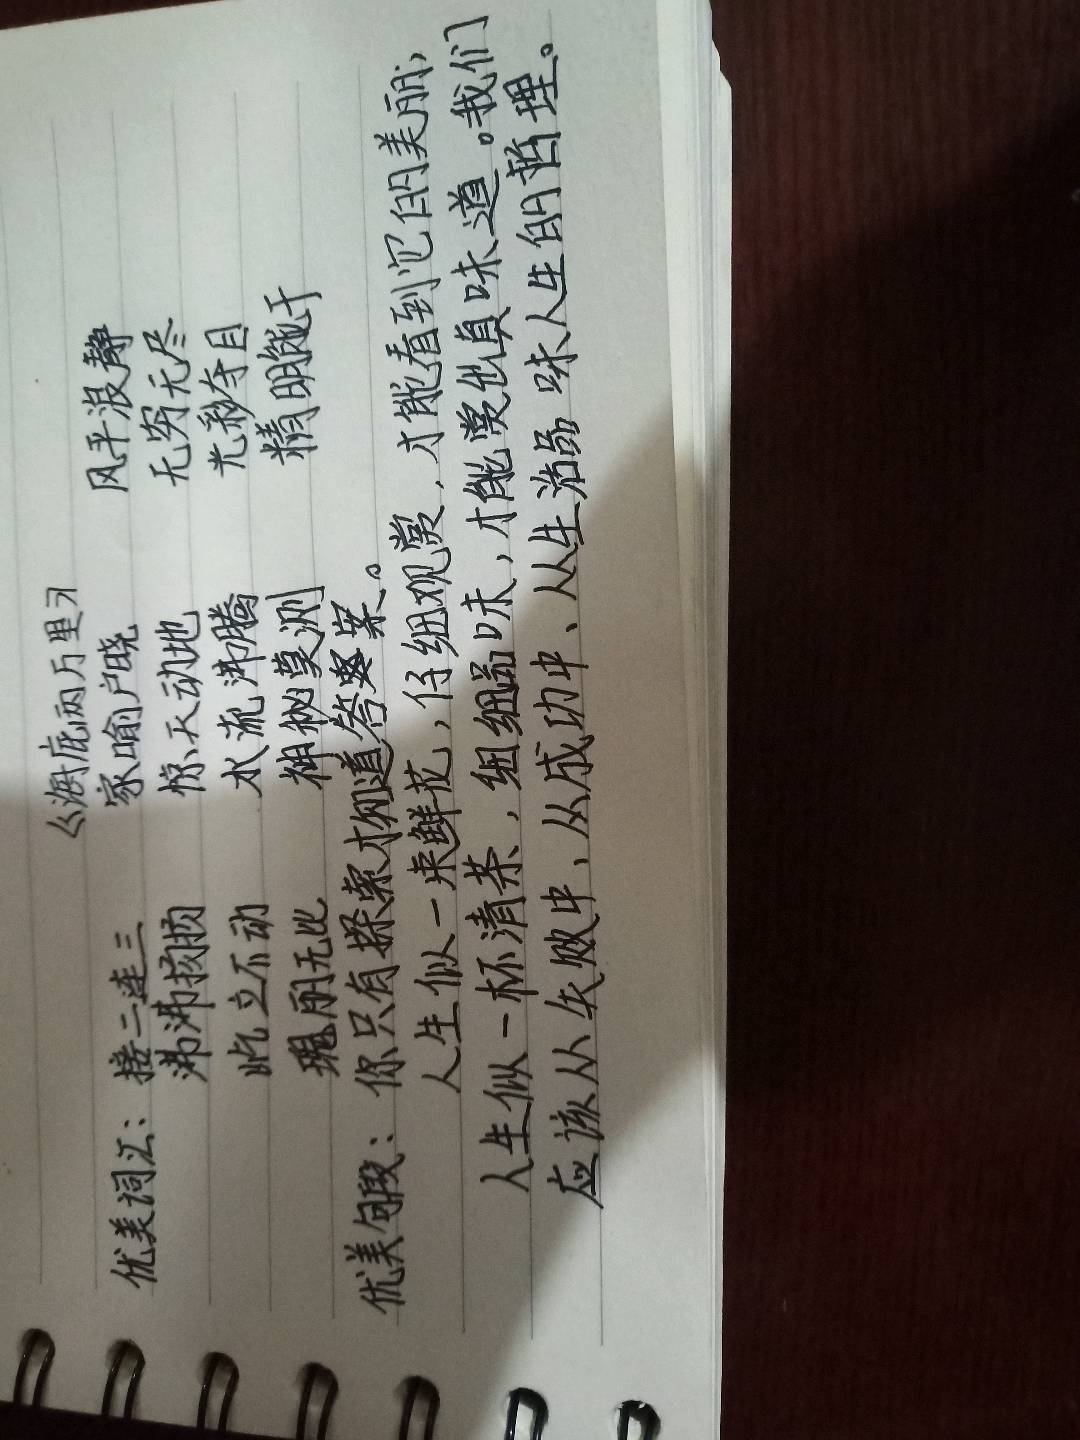 《海底两万里》
优美词汇：接二连三 家喻户晓 风平浪静
沸沸扬扬 惊天动地 无穷无尽
屹立不动 水流沸腾 光彩夺目
瑰丽无比 神秘莫测 精明能干
优美句段：你只有探索才知道答案。
人生似一束鲜花，仔细观赏，才能看到它的美丽；
人生似一杯清茶，细细品味，才能赏出真味道。我们
应该从失败中、从成功中、从生活品味人生的哲理。